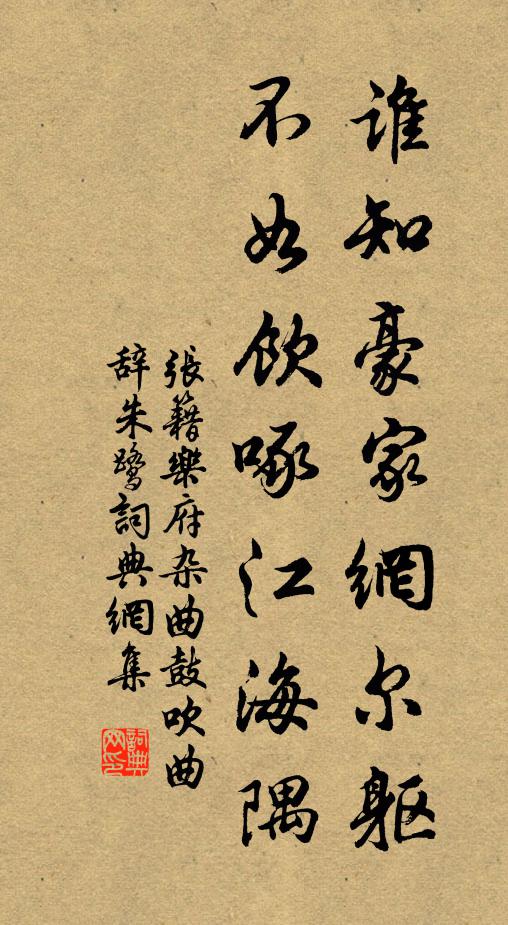 誰知豪家網尔軀
不如飲啄江海隅
張籍樂府杂曲鼓吹曲
辞朱鷺詞典網集
詞典
网印